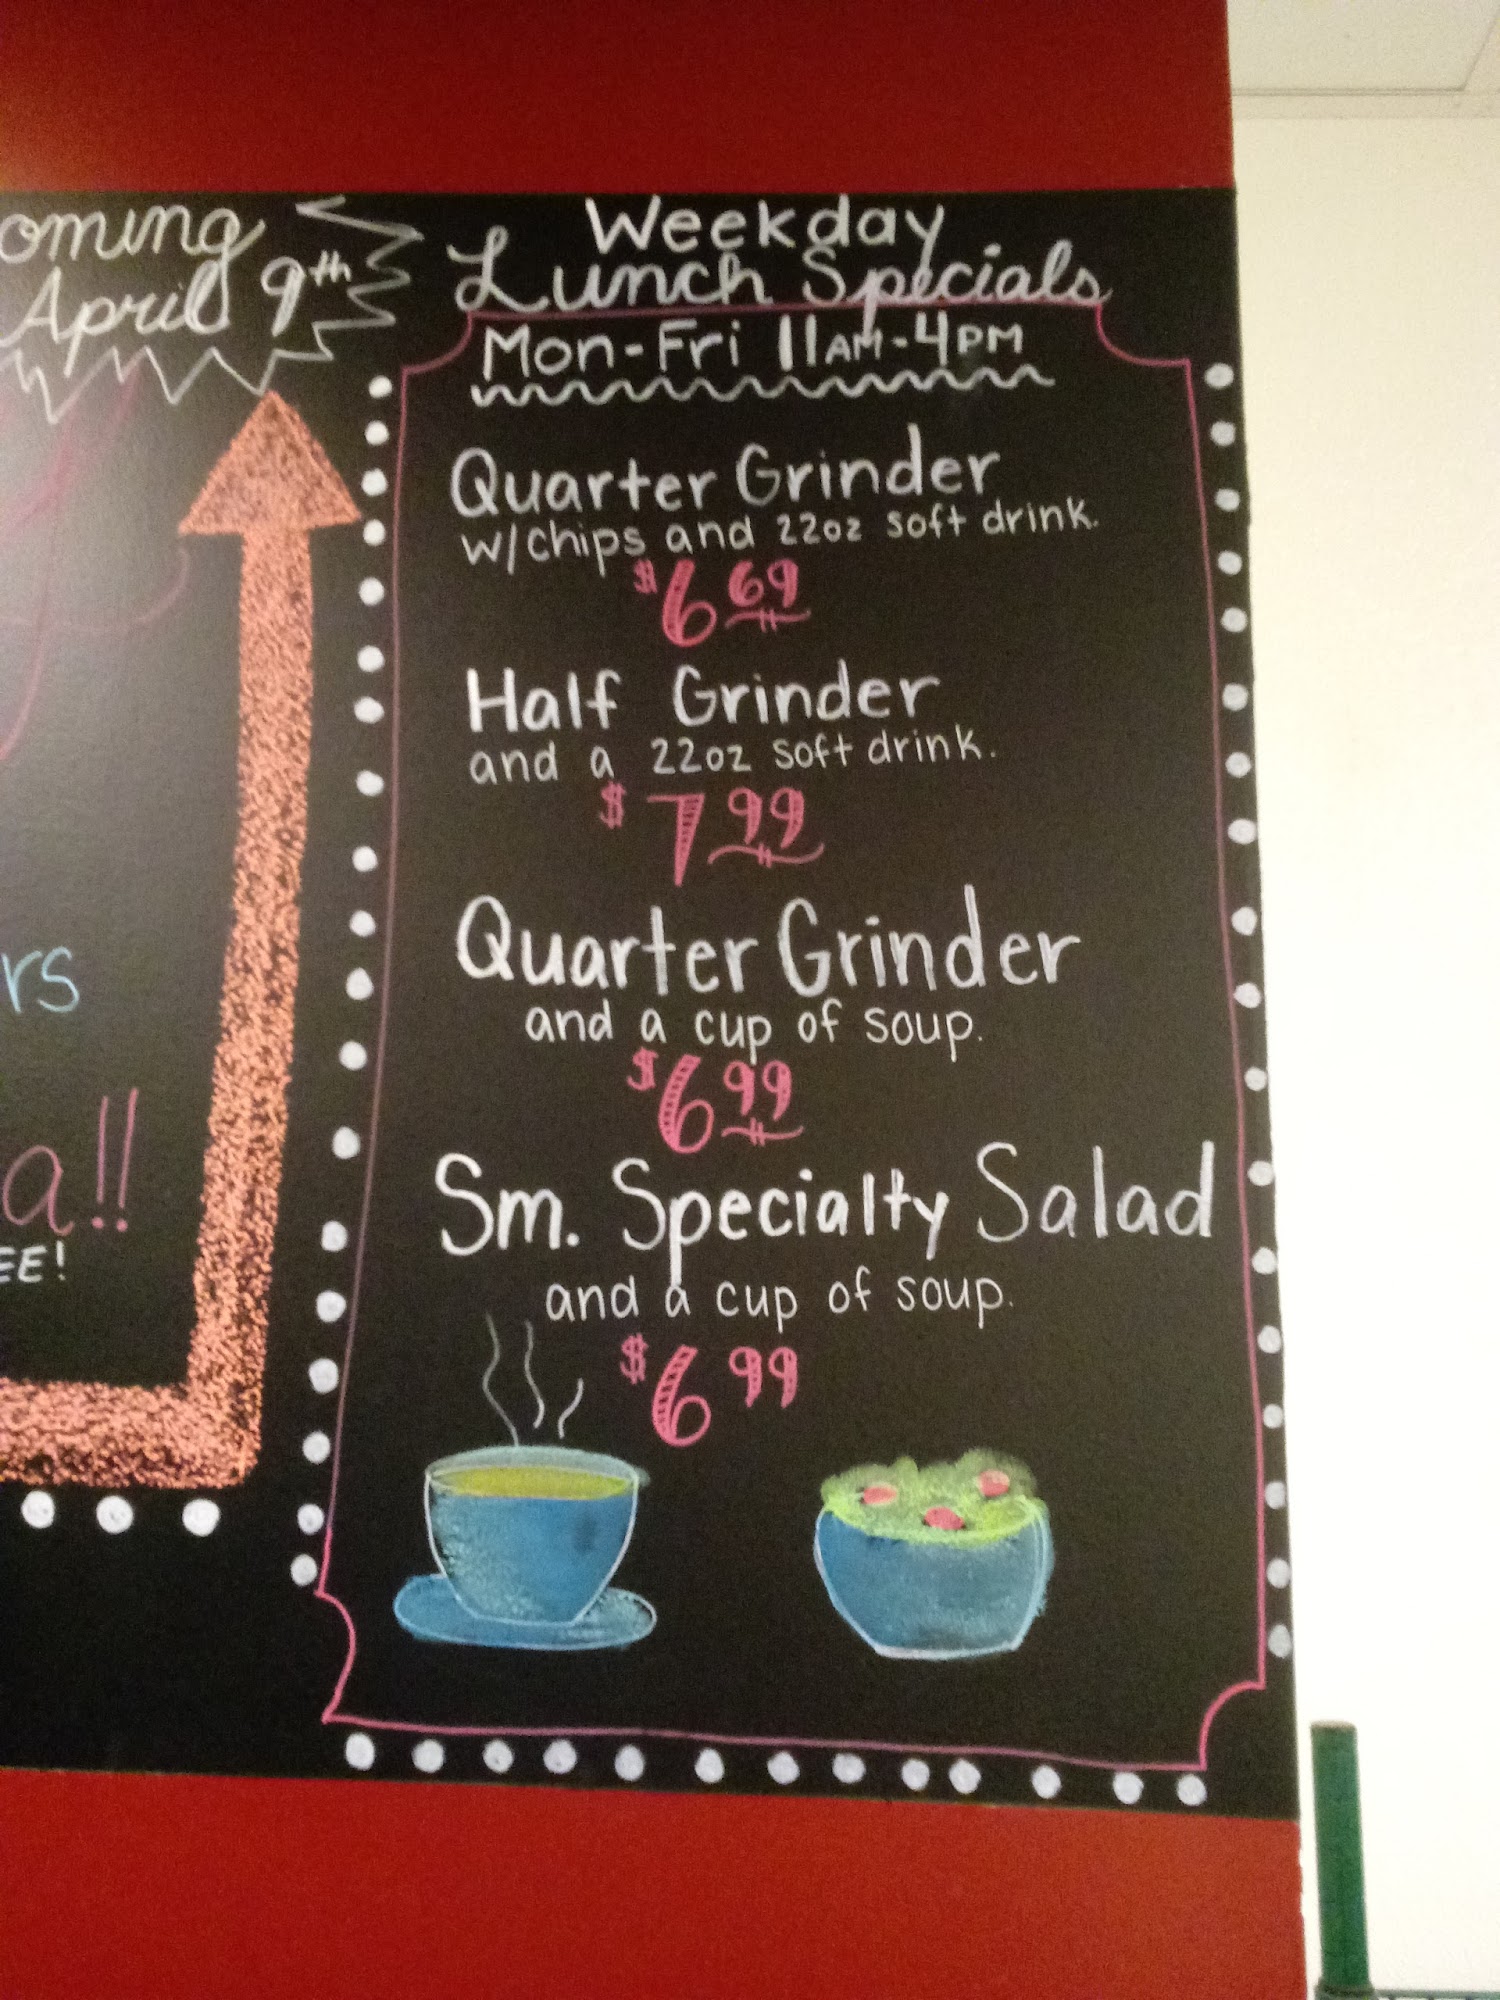 oming
April 9th
rs
a!!
EE!
Weekday
Lunch Specials
Mon-Fri 11AM-4PM
Quarter Grinder
w/chips and 22oz soft drink.
$6 69
Half Grinder
and a 22oz soft drink.
$7 99
Quarter Grinder
and a cup of soup.
$6 99
Sm. Specialty Salad
and a cup of soup.
$6 99